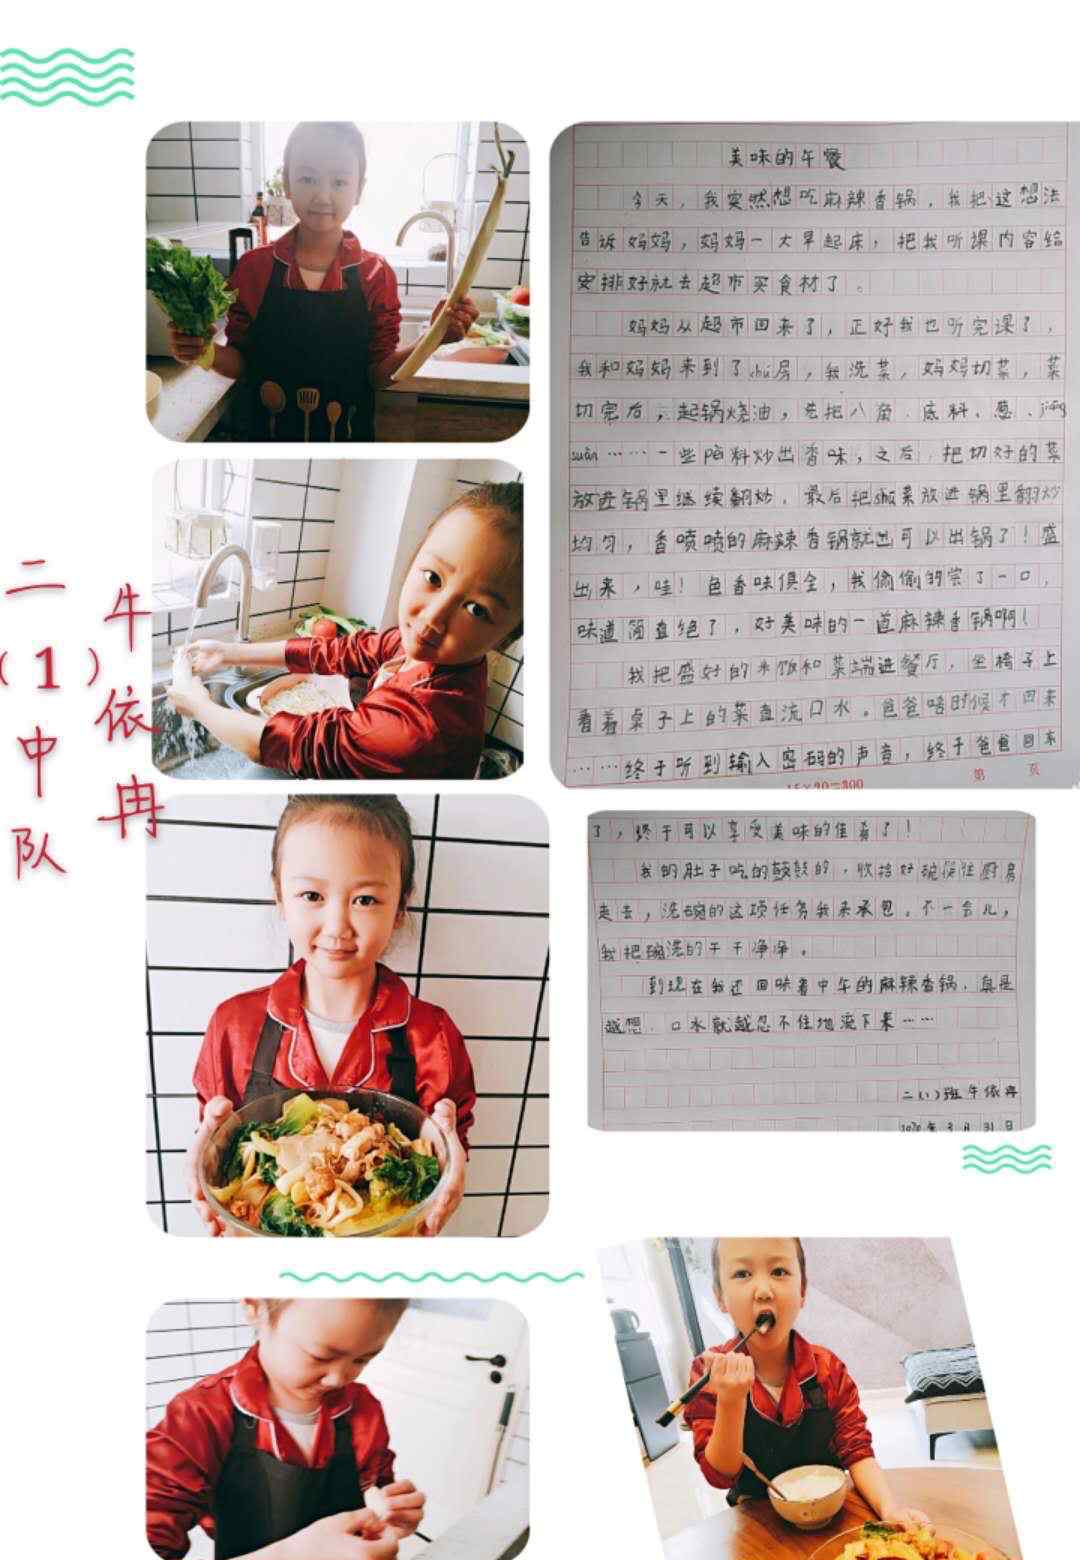 二(1)中队
牛依冉
美味的午餐
今天，我突然想吃麻辣香锅，我把这想法
告诉妈妈，妈妈一大早起床，把我听课内容给
安排好就去超市买食材了。
妈妈从超市回来了，正好我也听完课了，
我和妈妈来到了chú房，我洗菜，妈妈切菜，菜
切完后，起锅烧油，先把八角、底料、葱、jiāng
suàn……一些陷料炒出香味，之后，把切好的菜
放进锅里继续翻炒，最后把sù菜放进锅里翻炒
均匀，香喷喷的麻辣香锅就也可以出锅了！盛
出来，哇！色香味俱全，我偷偷的尝了一口，
味道简直绝了，好美味的一道麻辣香锅啊！
我把盛好的米饭和菜端进餐厅，坐椅子上
看着桌子上的菜直流口水。爸爸啥时候才回来
……终于听到输入密码的声音，终于爸爸回来
15×20=300
第 页
了，终于可以享受美味的佳肴了！
我的肚子吃的鼓鼓的，收拾好碗筷往厨房
走去，洗碗的这项任务我来承包。不一会儿，
我把碗洗的干干净净。
到现在我还回味着中午的麻辣香锅，真是
越想，口水就越忍不住地流下来……
二(1)班牛依冉
2020年3月31日